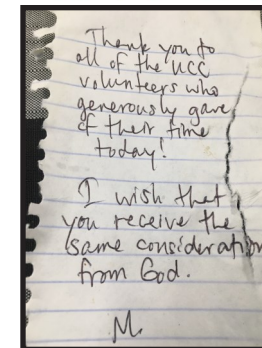 Thank you to
all of the UCC
volunteers who
generously gave
of their time
today!
I wish that
you receive the
same consideration
from God.
M.